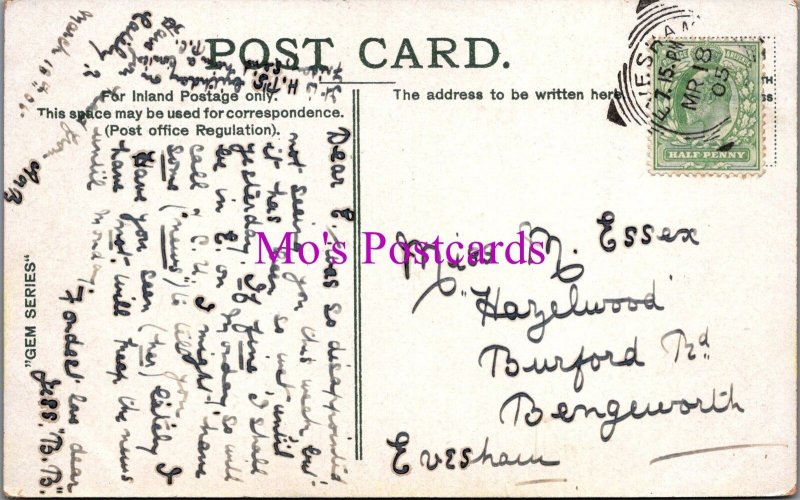 POST CARD.
For Inland Postage only.
This space may be used for correspondence.
(Post office Regulation).
The address to be written here
"GEM SERIES"
Mo's Postcards
ESHAM
7.15 PM
MR 18
05
HALF PENNY
Miss M. Essex
"Hazelwood"
Burford Rd
Bengeworth
Evesham
Dear E. I was so disappointed
not seeing you this week, but
it has been so wet until
yesterday. If fine I shall
be in E. on Monday so will
call & C. U. I might have
some ("news") to tell you
Have you seen (her) lately I
have not will keep the news
until Monday,
Fondest love dear
Jess. "B.B."